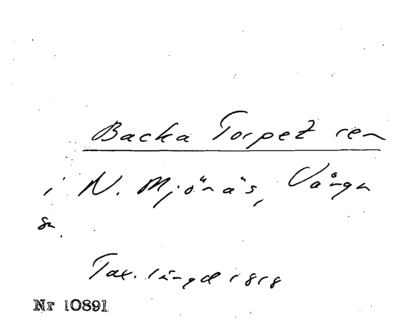 Backa Torpet ren
i N. Mjönäs, Vånga
sn.
Tax. längd 1818
Nr 10891